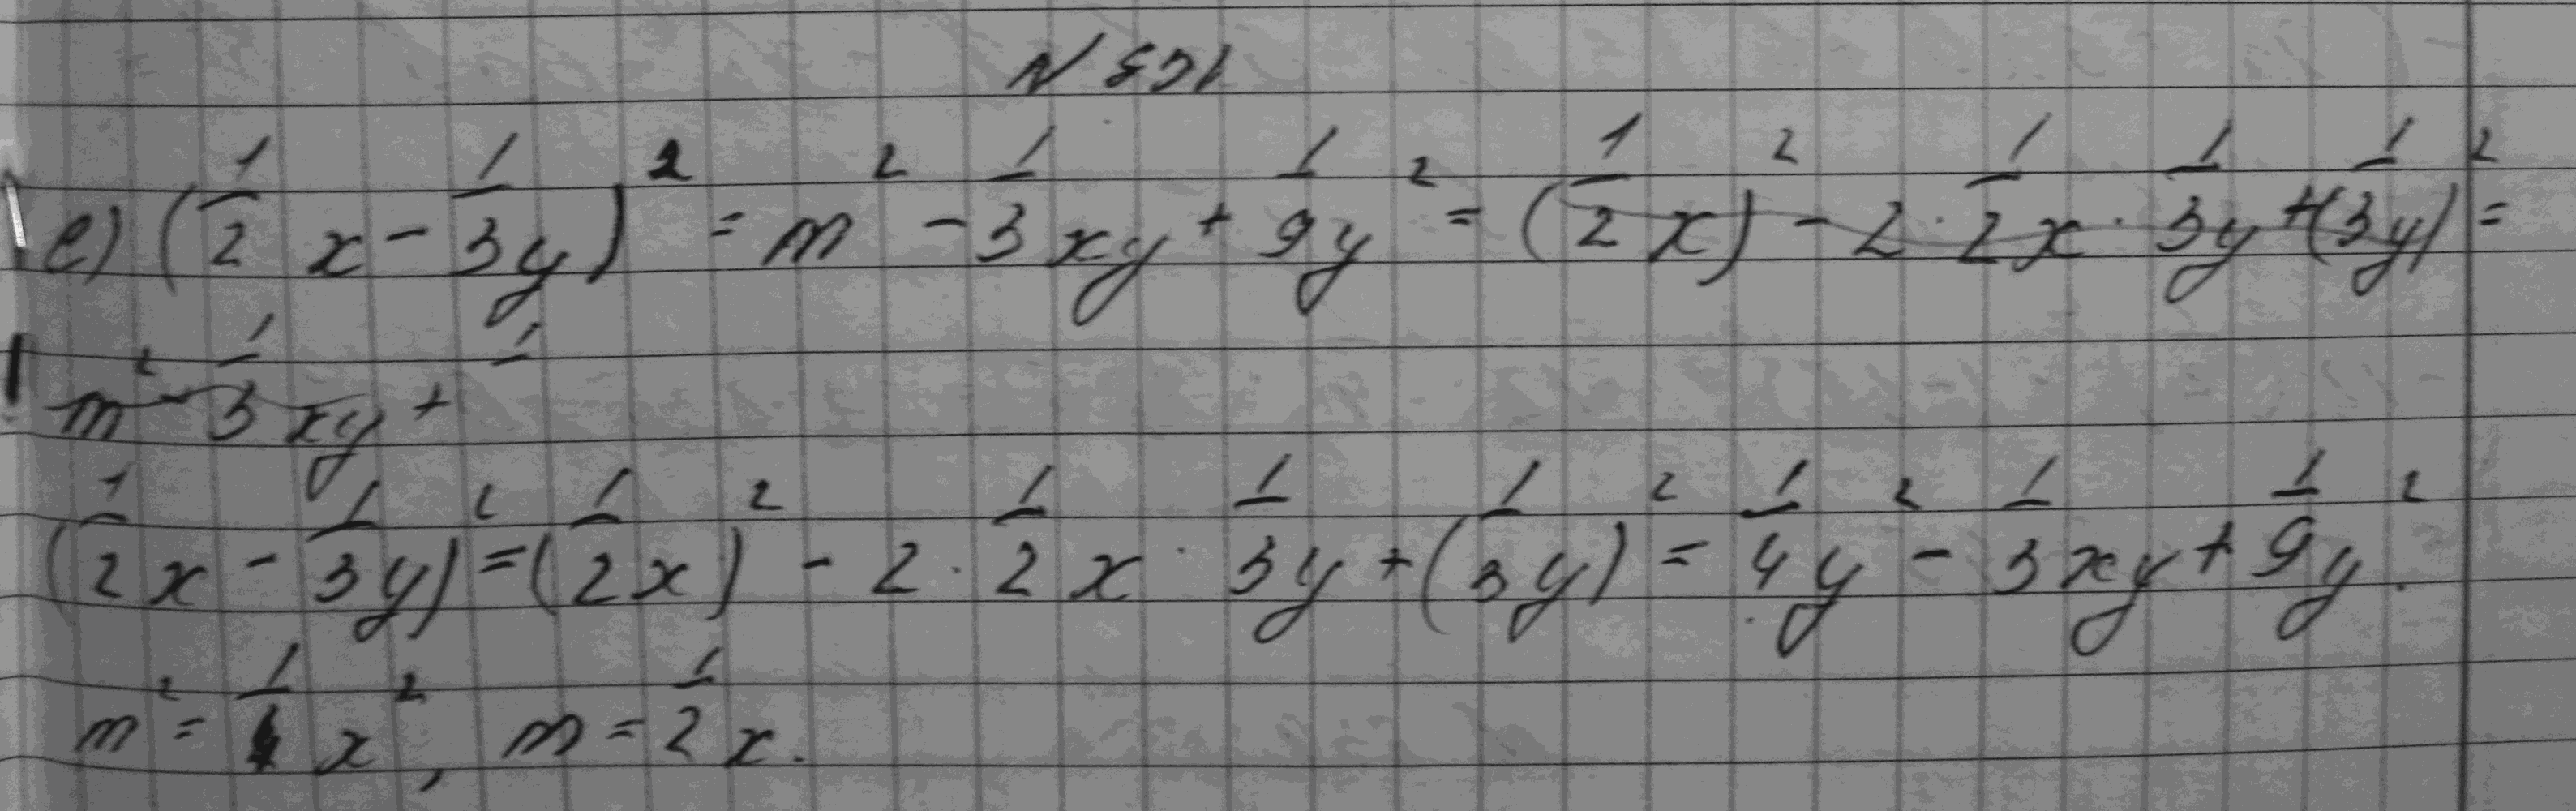 N 531
е) (1/2 x - 1/3 y)² = m² - 1/3 xy + 1/9 y² = (1/2 x)² - 2 · 1/2 x · 1/3 y + (1/3 y)² =
m² - 1/3 xy + 1/
(1/2 x - 1/3 y)² = (1/2 x)² - 2 · 1/2 x · 1/3 y + (1/3 y)² = 1/4 y² - 1/3 xy + 1/9 y².
m² = 1/4 x², m = 1/2 x.